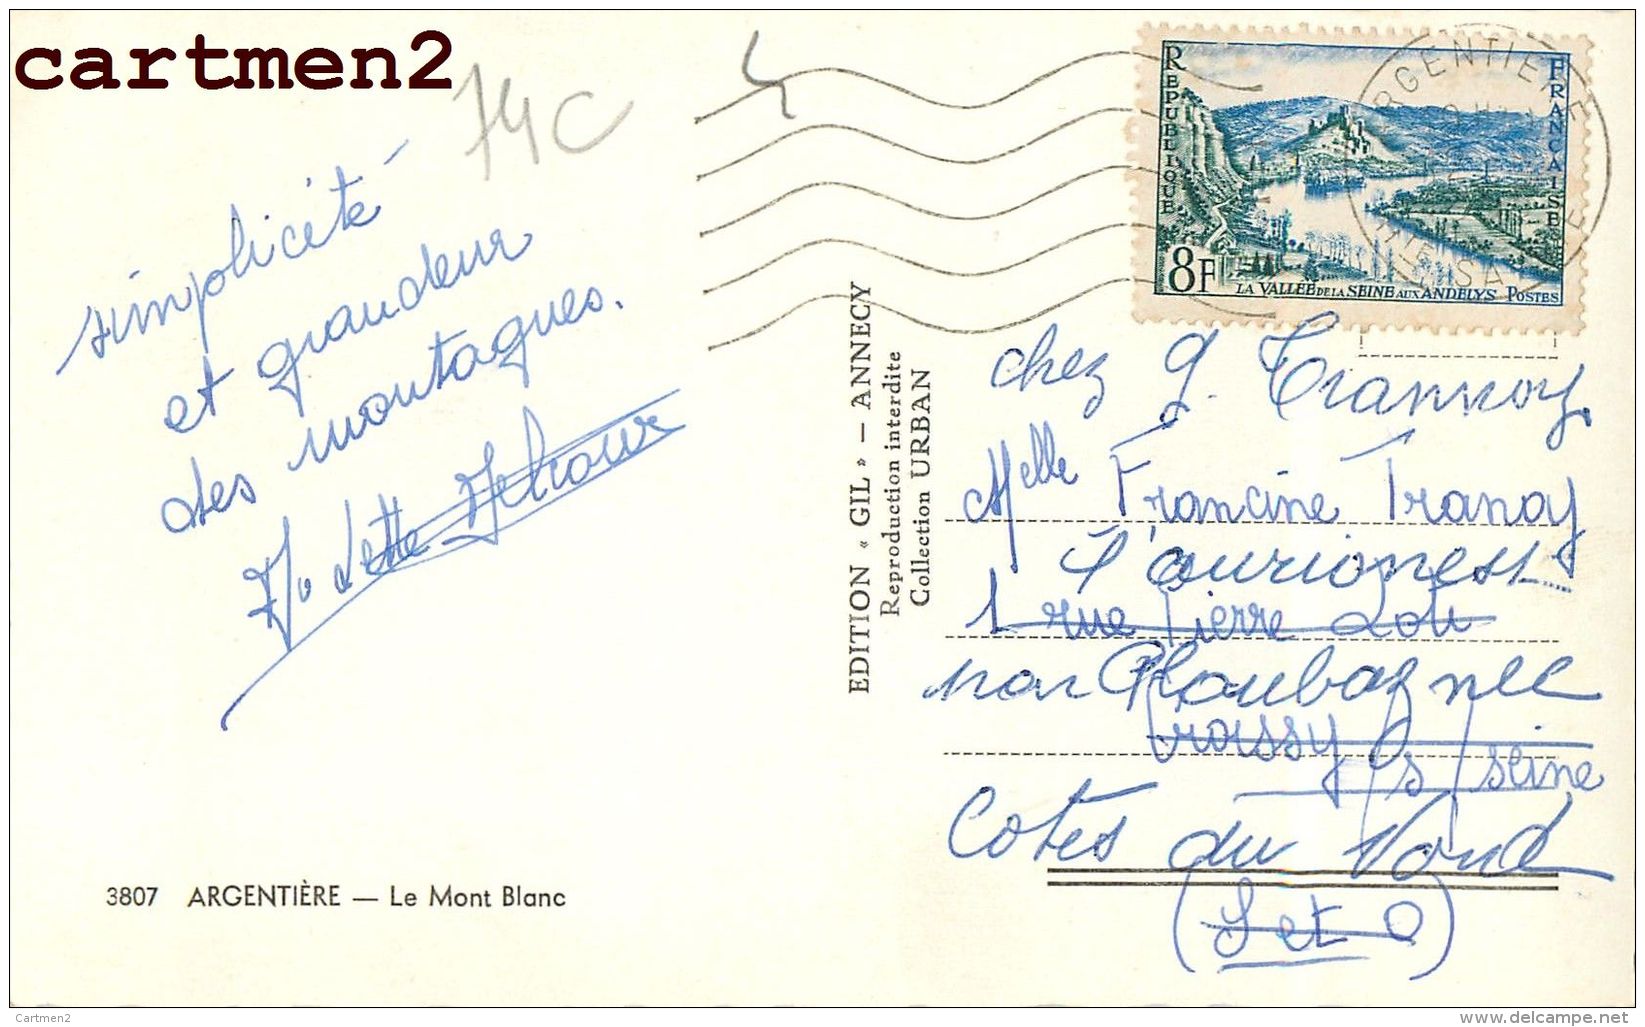 cartmen2
74C
simplicité
et grandeur
des montagnes.
EDITION « GIL » — ANNECY
Reproduction interdite
Collection URBAN
REPUBLIQUE
FRANCAISE
8F
LA VALLEE DE LA SEINE AUX ANDELYS POSTES
ARGENTIERE
HTE SAVOIE
chez G. Trannoy
Melle Francine Tranoy
1 rue Pierre Loti
par Ploubaznec
Croissy s/ seine
Cotes du Nord
(S et O)
3807 ARGENTIÈRE — Le Mont Blanc
Cartmen2
www.delcampe.net